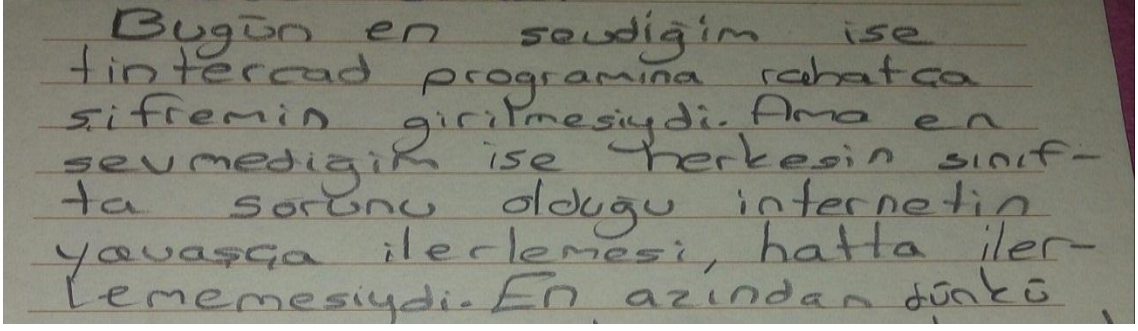 Bugün en sevdiğim ise
tintercad programına rahatça
şifremin girilmesiydi. Ama en
sevmediğim ise herkesin sınıf-
ta sorunu olduğu internetin
yavaşça ilerlemesi, hatta iler-
lememesiydi. En azından dünkü